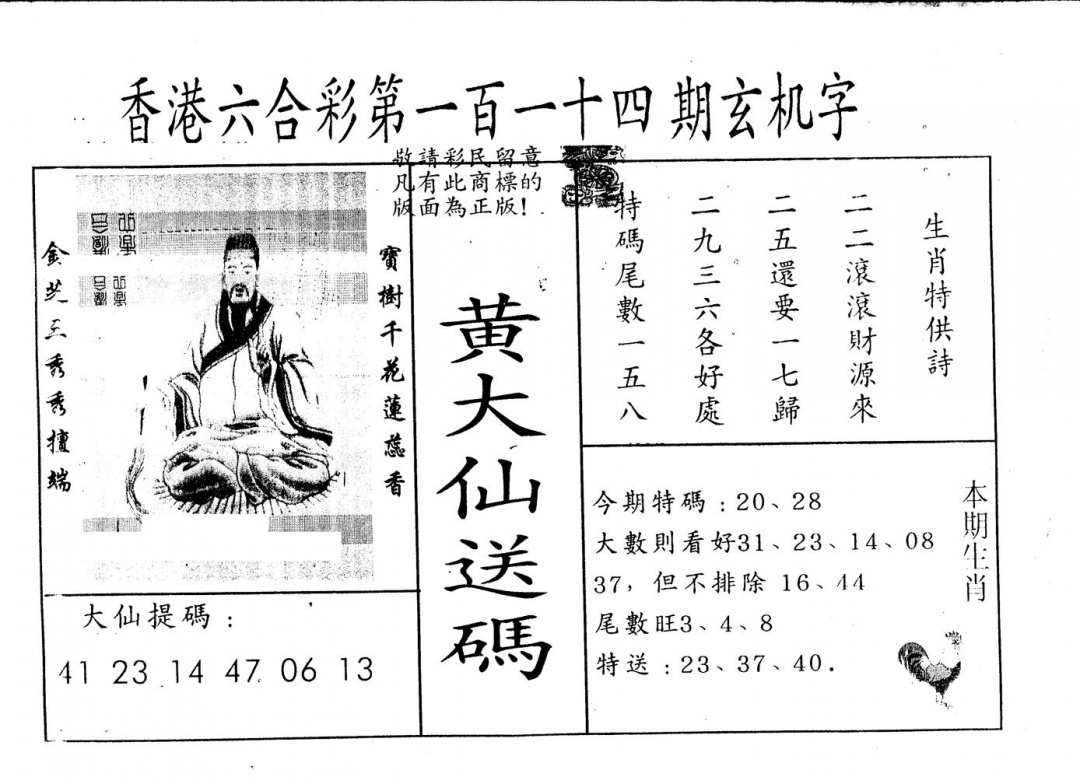 香港六合彩第一百一十四期玄机字
敬請彩民留意
凡有此商標的
版面為正版!
金芝三秀秀擅端
寶樹千花蓮蕊香
大仙提碼:
41 23 14 47 06 13
黃大仙送碼
生肖特供詩
二二滾滾財源來
二五還要一七歸
二九三六各好處
特碼尾數一五八
本期生肖
今期特碼:20、28
大數則看好31、23、14、08
37，但不排除 16、44
尾數旺3、4、8
特送:23、37、40.